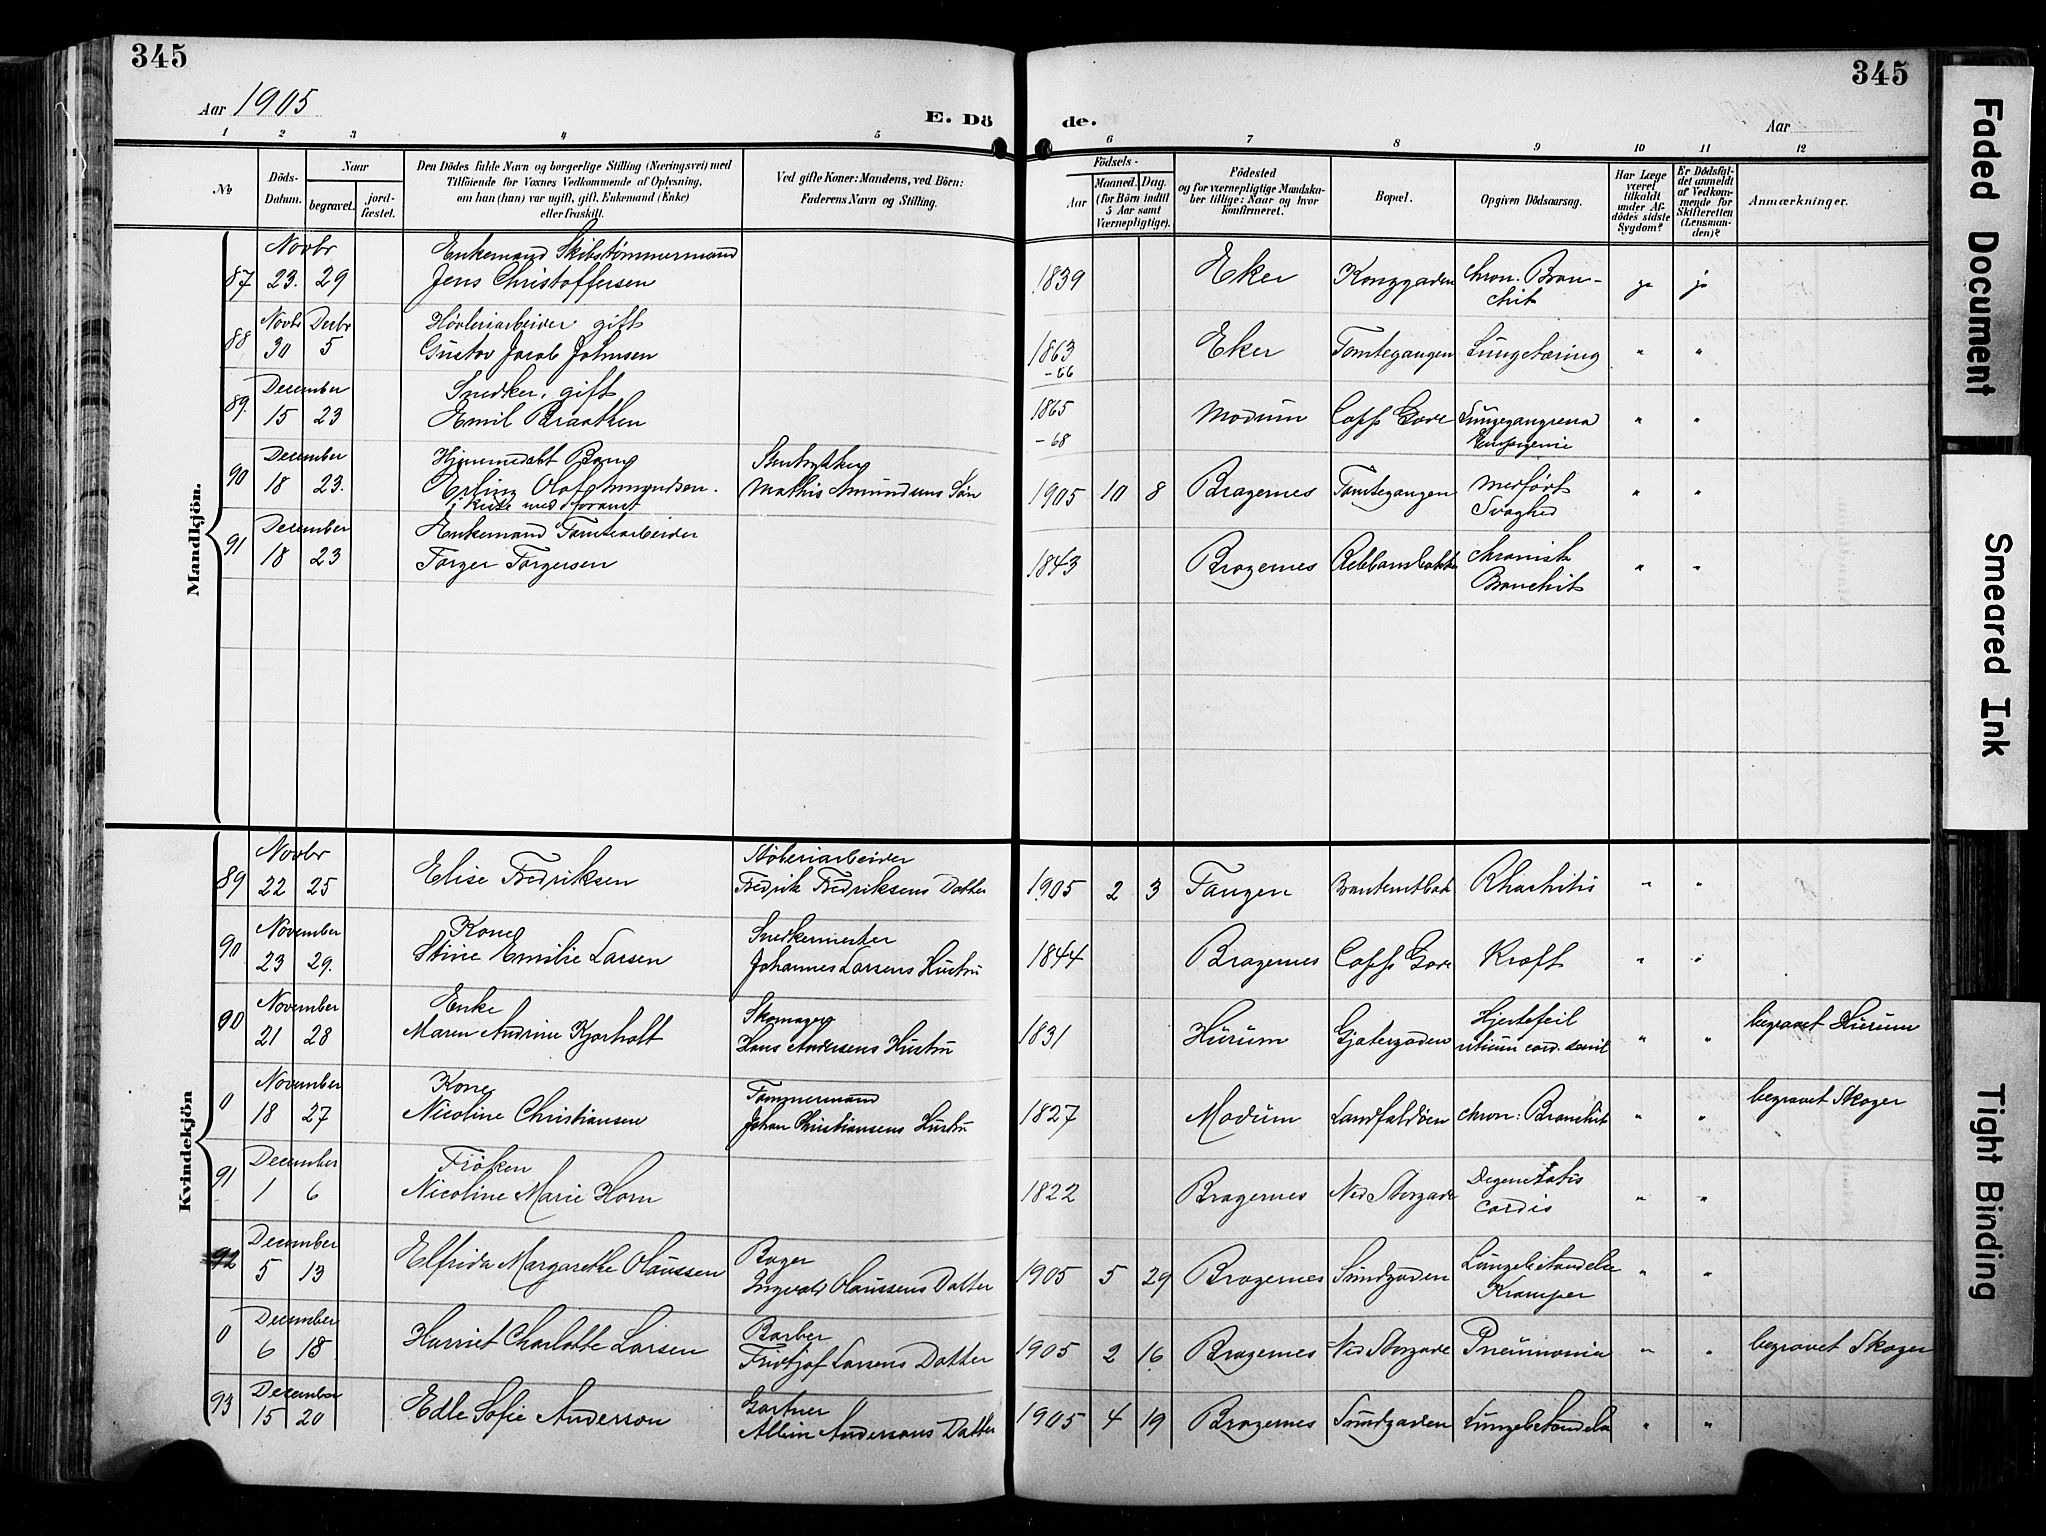 345
345
Aar 1905
E. Dö
de.
Aar
1 2 3 4 5 6 7 8 9 10 11 12
No
Döds-
Datum.
Naar
begravet.
jord-
fæstet.
Den Dödes fulde Navn og borgerlige Stilling (Næringsvei) med
Tilföiende for Voxnes Vedkommende af Oplysning,
om han (hun) var ugift, gift, Enkemand (Enke)
eller fraskilt.
Ved gifte Koner: Mandens, ved Börn:
Faderens Navn og Stilling.
Födsels-
Aar
Maaned. Dag.
(for Börn indtil
5 Aar samt
Værnepligtige).
Födested
og for værnepligtige Mandska-
ber tillige: Naar og hvor
konfirmeret.
Bopæl.
Opgiven Dödsaarsag.
Har Læge
været
tilkaldt
under Af-
dödes sidste
Sygdom?
Er Dödsfal-
det anmeldt
af Vedkom-
mende for
Skifteretten
(Lensman-
den)?
Anmærkninger.
Mandkjön.
Novbr Enkemand Skibstømmermand
87 23. 29 Jens Christoffersen 1839 Eker Konggaden chron. Bron-
chit ja ja
Novbr Decbr Høvleriarbeider gift
88 30 5 Gustav Jacob Johnsen 1863 Eker Tomtegangen Lungetæring " "
-66
December Snedker, gift
89. 15 23 Emil Braathen 1865 Modum Capps Gade Lungegangrena " "
-68
December Hjemmedøbt
90 18 23. Erling Olaf Amundsen. Mathis Amundsens Søn 1905 10 8 Bragernes Tomtegangen medfødt
Svaghed " "
December Enkemand Tomtearbeider
91 18 23 Torger Torgersen 1843 Bragernes chronisk
Bronchit " "
Kvindekjön
Novbr
89 22 25 Elise Fredriksen Fredrik Fredriksens Datter 1905 2 3 Tangen Rhachitis " "
November Kone Snedkermester
90 23 29. Stine Emilie Larsen Johannes Larsens Hustru 1844 Bragernes Capps Gade Kræft " "
November Enke Skomager
90 21 28 Maren Andrine Kjørholt Hans Andersens Hustru 1831 Hurum Gjetergaden Hjertefeil
vitium cord. senil " " begravet Hurum
November Kone Tømmermand
0 18 27 Nicoline Christiansen Johan Christiansens Hustru 1827 Modum Landfaldøen chron: Bronchit " " begravet Skoger
December Frøken
91 1 6 Nicoline Marie Horn 1822 Bragernes Ned Storgade cordis " "
December
92 5 13 Elfrida Margarethe Olaussen Bager
Ingvald Olaussens Datter 1905 5 29 Bragernes Sundgaden Lungebetændelse
Kramper " "
December Barber
0 6 18 Harriet Charlotte Larsen Fridtjof Larsens Datter 1905 2 16 Bragernes Ned Storgade Pneumonia " " begravet Skoger
December Gartner
93 15 20 Edle Sofie Anderson Albin Andersons Datter 1905 4 19 Bragernes Sundgaden Lungebetændelse " "
Faded Document
Smeared Ink
Tight Binding